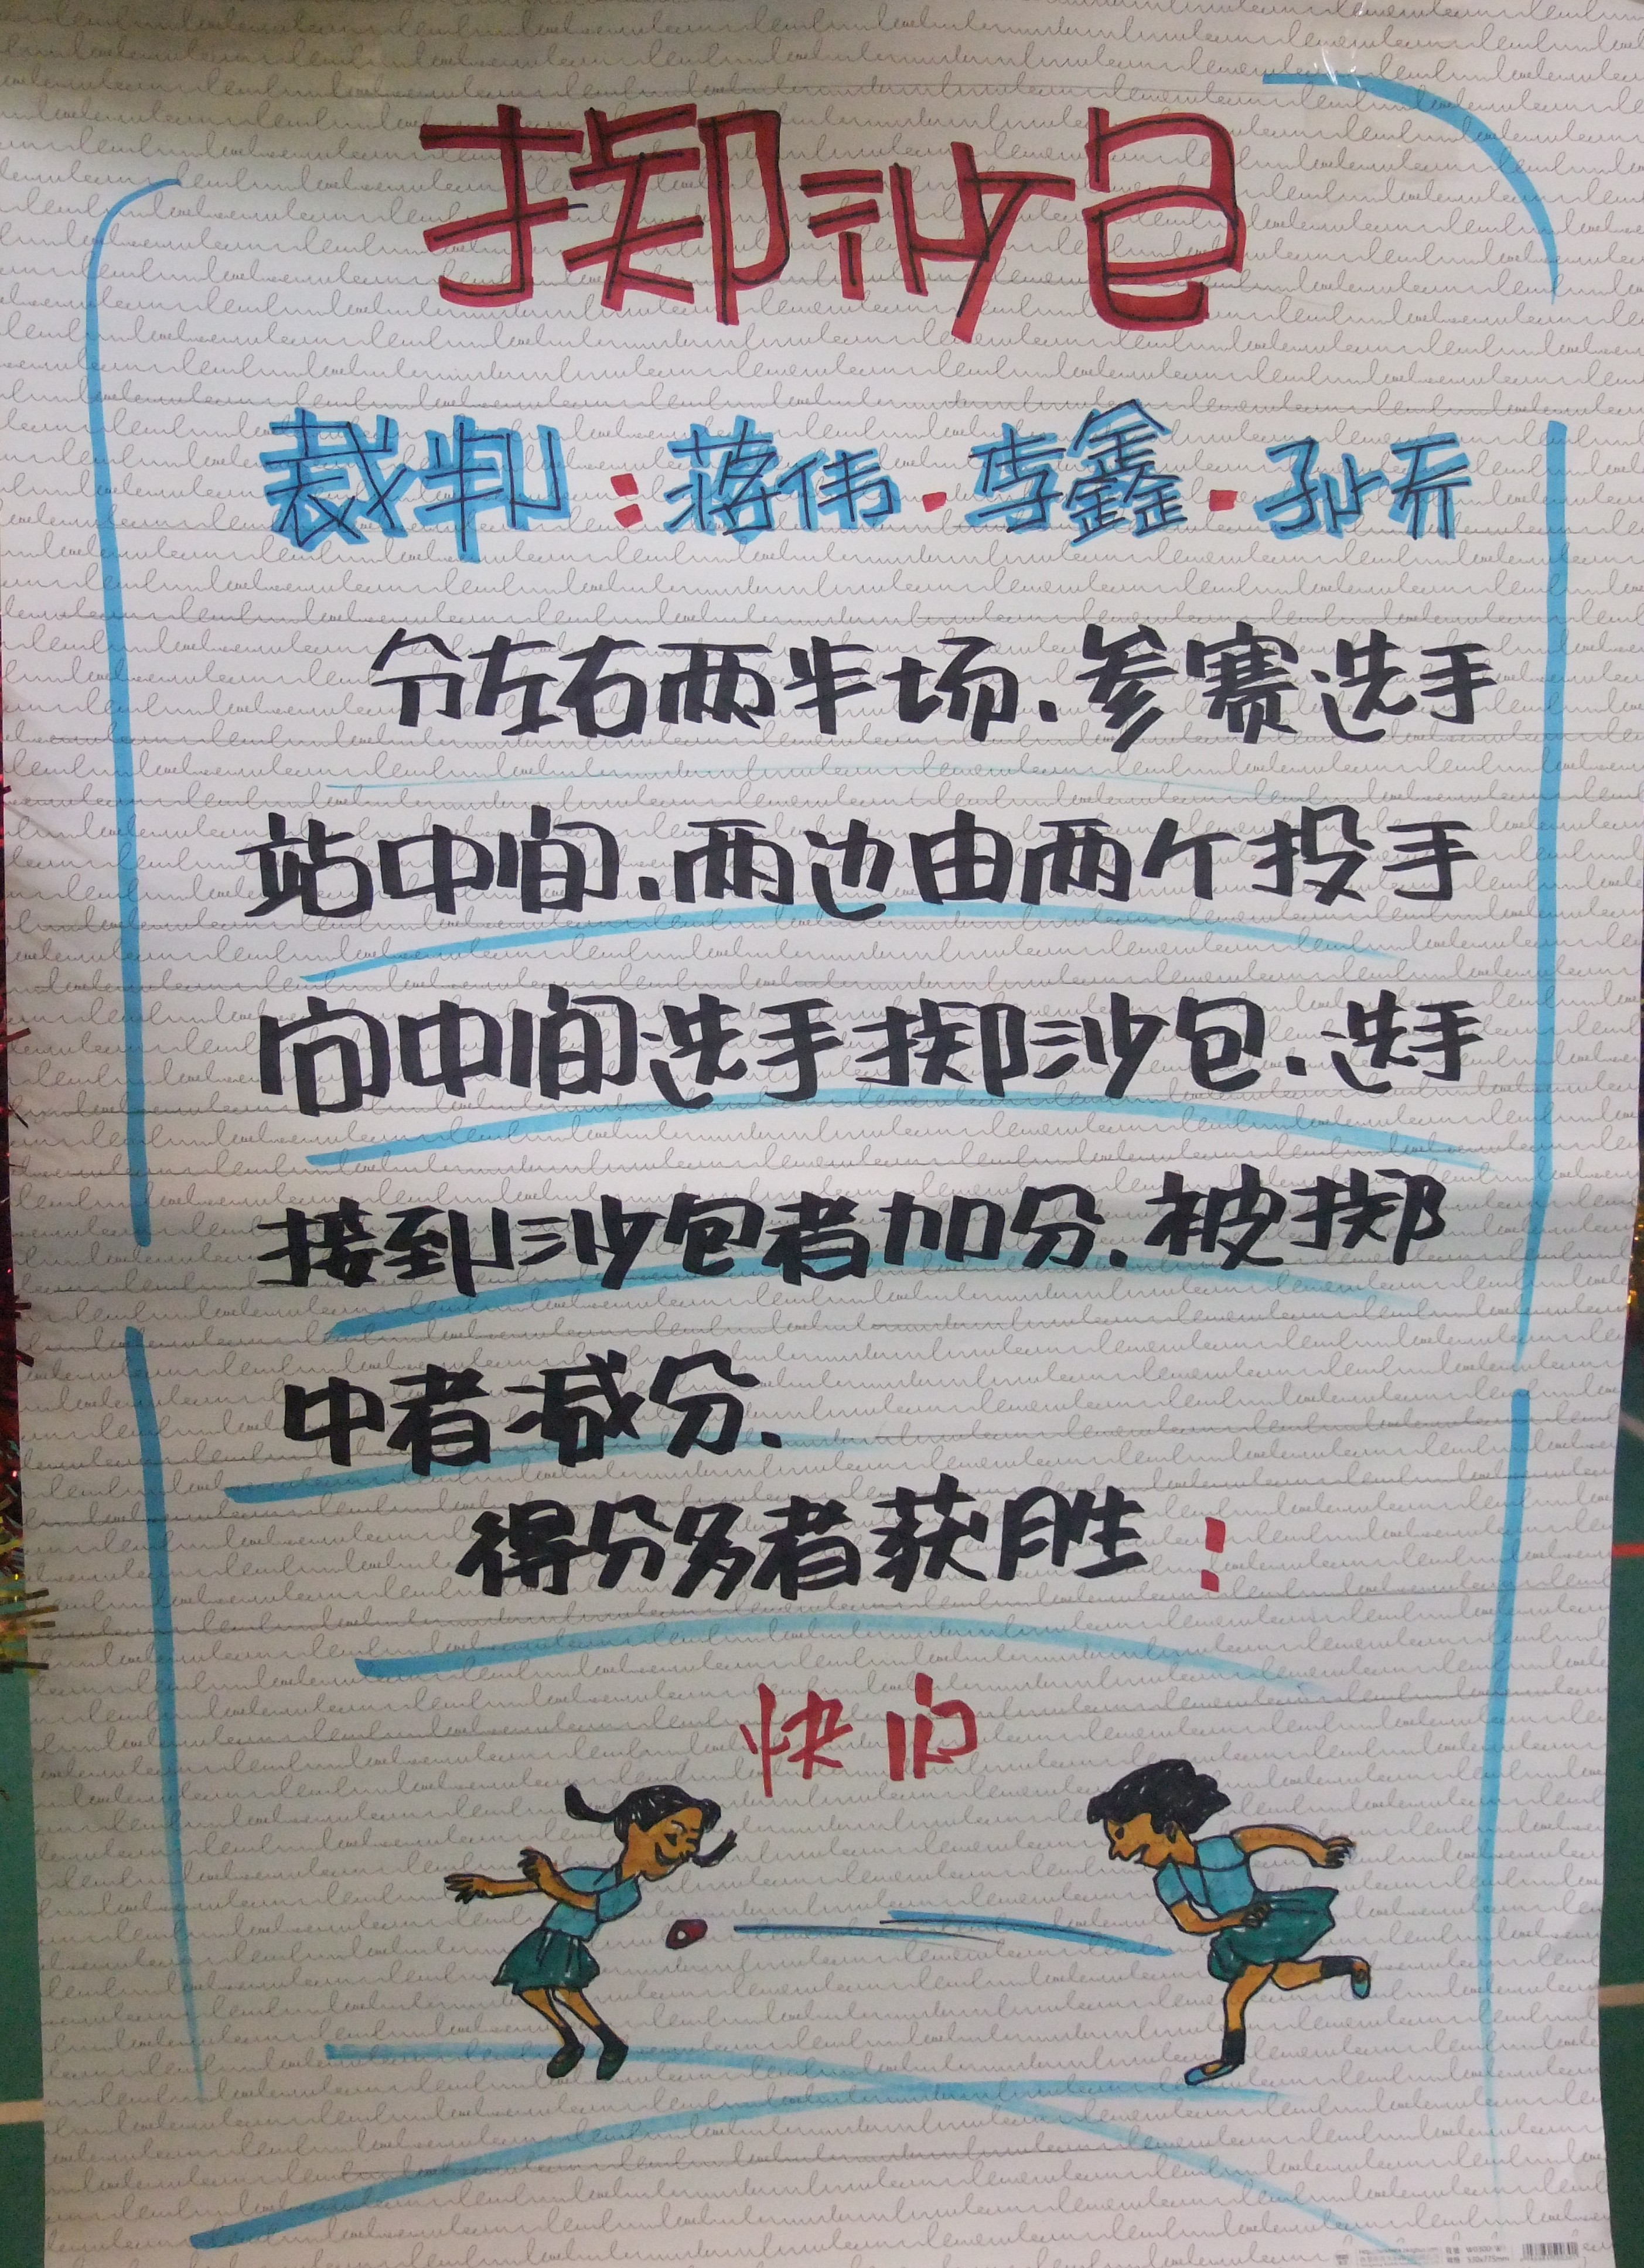 掷沙包
裁判:蒋伟.李鑫.孙乔
分左右两半场.参赛选手
站中间.两边由两个投手
向中间选手掷沙包.选手
接到沙包者加分.被掷
中者减分.
得分多者获胜:
快